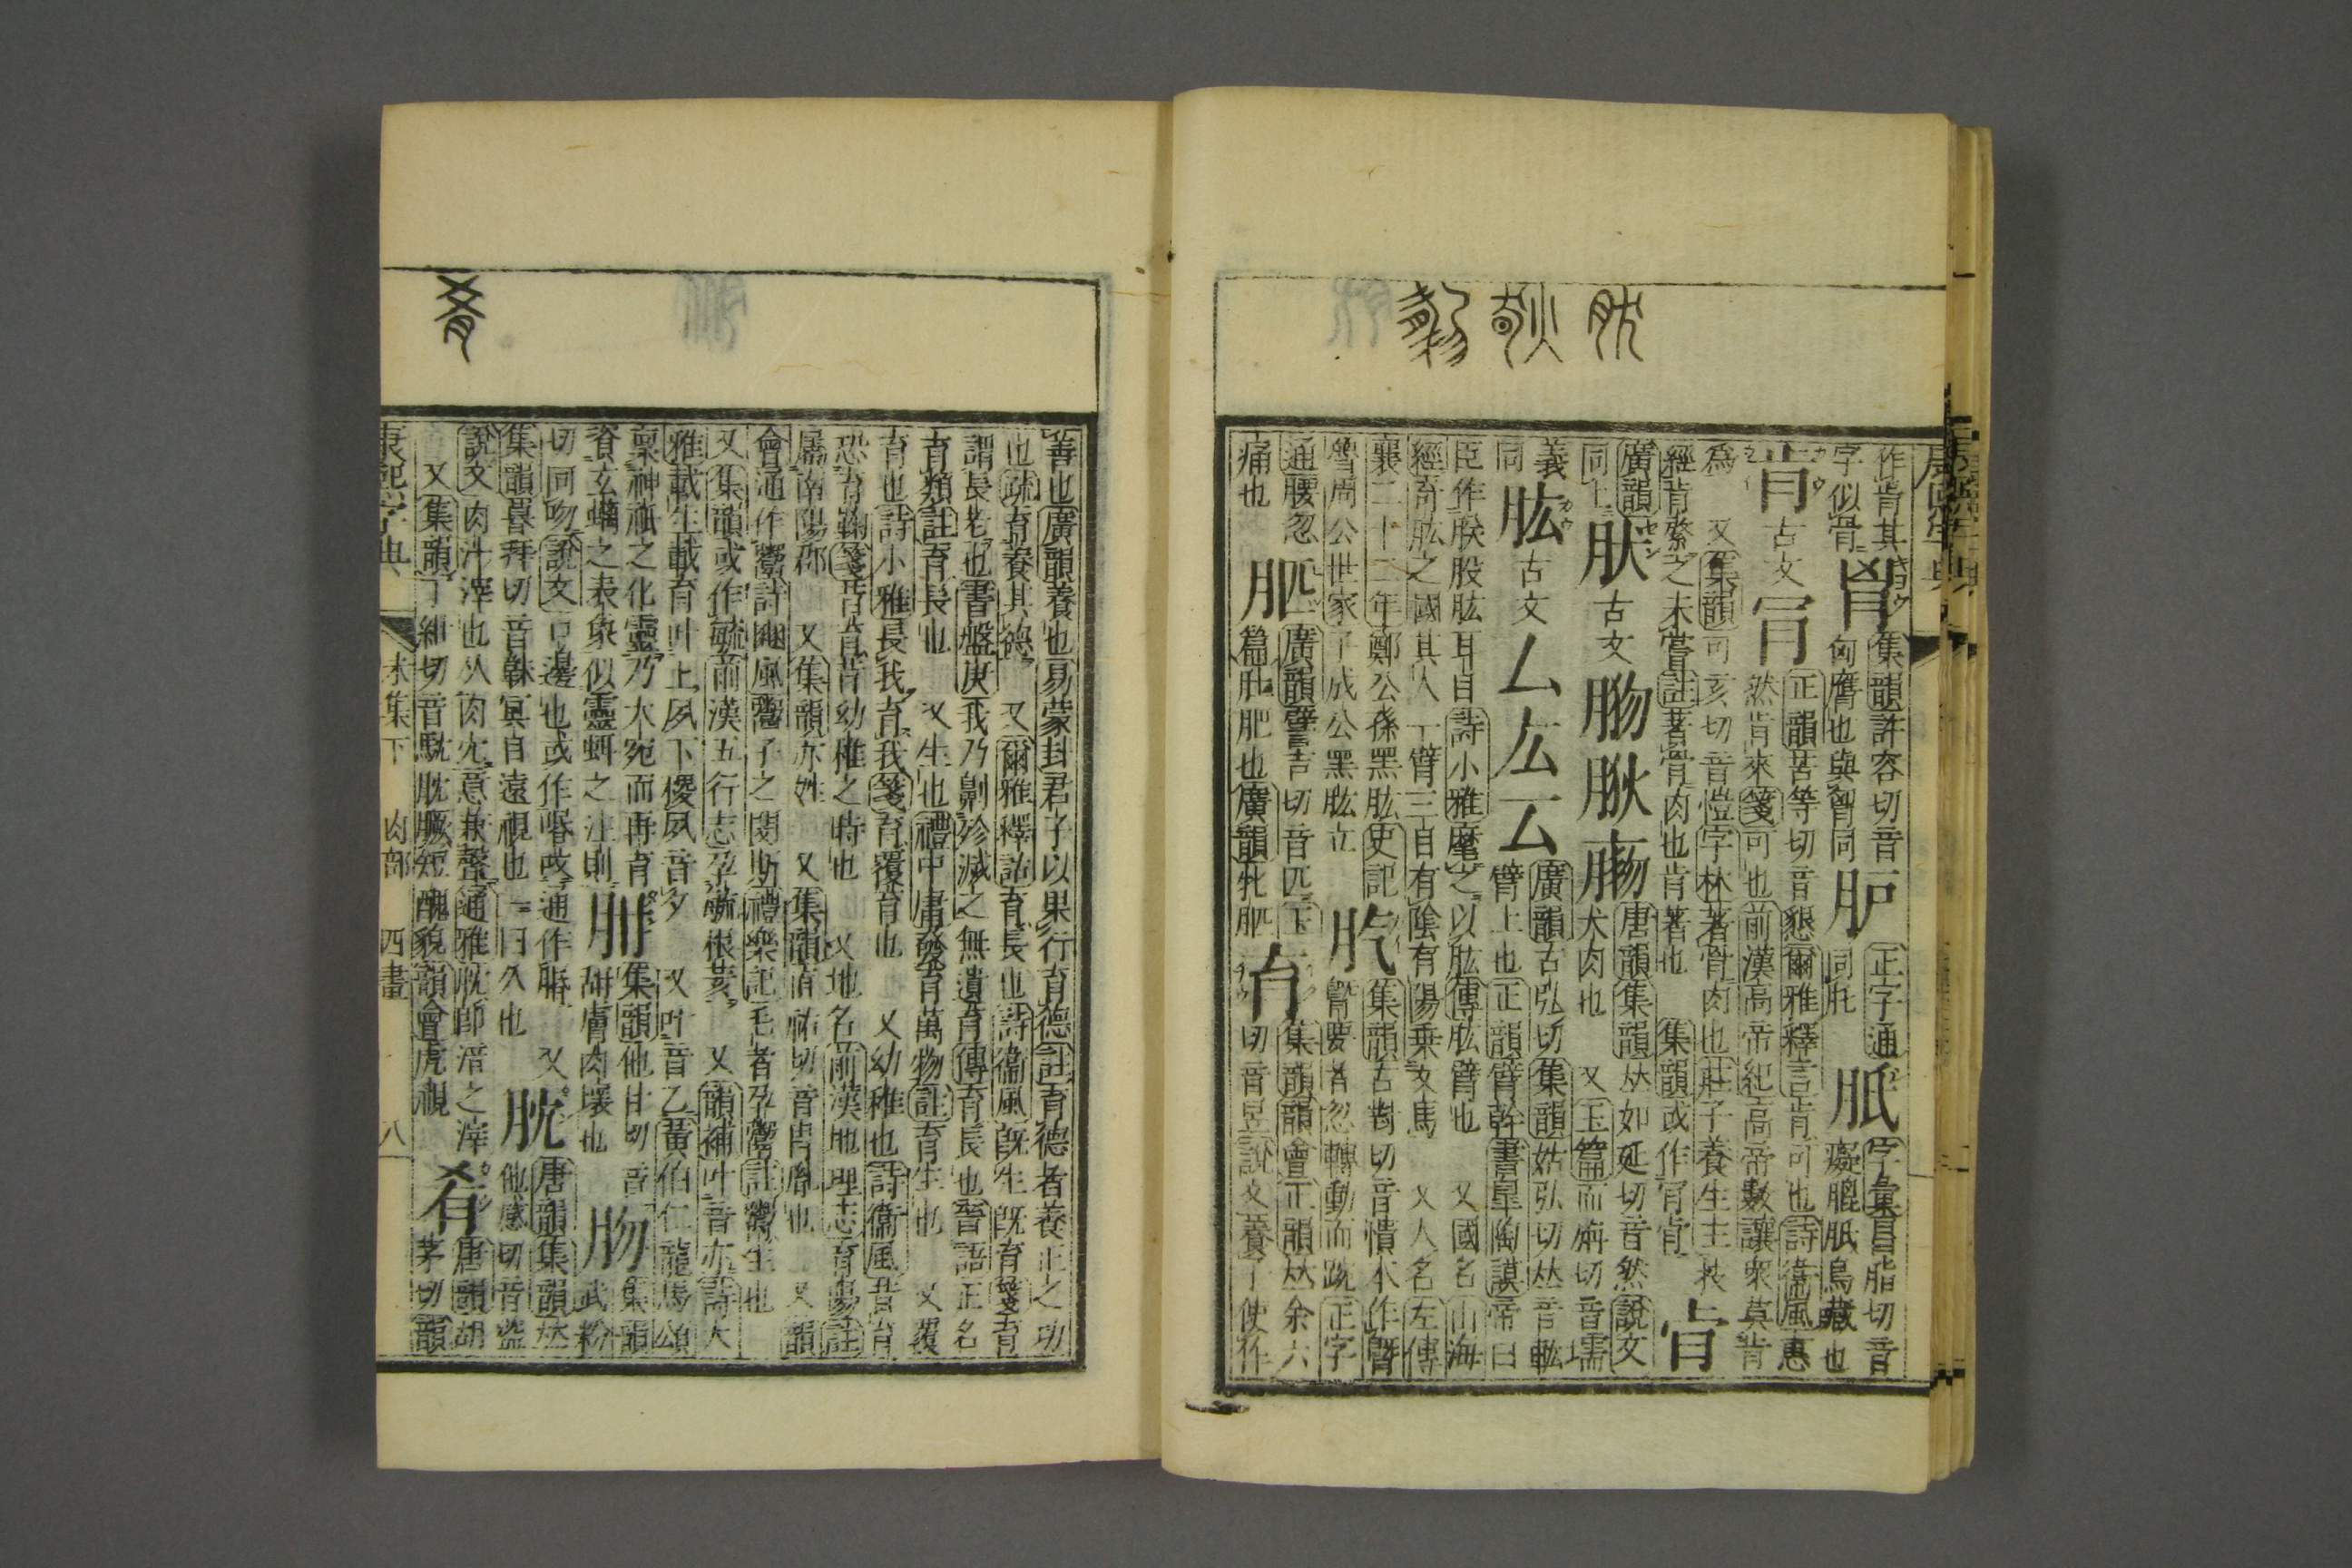 作肯其
字似骨
胷
集韻許容切音
匈膺也與胷同
正字通
同肚
字彙昌脂切音
癡膍胝鳥藏也
肯
古文
肎
正韻苦等切音懇爾雅釋言肯可也詩衞風惠
然肯來箋可也前漢高帝紀高帝數讓衆莫肯
爲 又集韻可亥切音愷字林著骨肉也莊子養生主技
經肯綮之未嘗註著骨肉也肯著也 集韻或作肎肻
肻
廣韻
同上
肰
古文
唐韻集韻𠀤如延切音然說文
犬肉也 又玉篇而㾕切音壖
義
同
肱
古文
厶
厷
廣韻古弘切集韻姑弘切𠀤音
臂上也正韻臂幹書皐陶謨帝曰
臣作朕股肱耳目詩小雅麾之以肱傳肱臂也 又國名山海
經奇肱之國其人一臂三目有陰有陽乗文馬 又人名左傳
襄二十二年鄭公孫黑肱史記
魯周公世家子成公黑肱立
集韻古對切音憒本作
臋要者忽轉動而踠正字
通腰忽
痛也
廣韻譬吉切音匹玉
篇 肥也廣韻牝
育
集韻韻會正韻𠀤余六
切音昱說文養子使作
善也廣韻養也易蒙卦君子以果行育德註育德者養正之功
也疏育養其德 又爾雅釋詁育長也詩衞風旣生旣育箋育
謂長老也書盤庚我乃劓殄滅之無遺育傳育長也晉語正名
育類註育長也 又生也禮中庸發育萬物註育生也 又覆
育也詩小雅長我育我箋育覆育也 又幼稚也詩衞風昔育
恐育鞠箋昔育昔幼稚之時也 又地名前漢地理志育陽註
屬南陽郡 又集韻亦姓 又集韻直祐切音冑胤也 又韻
會通作鬻詩豳風鬻子之閔斯禮樂記毛者孕鬻註鬻生也
又集韻或作毓前漢五行志孕毓根荄 又韻補叶音亦詩大
雅載生載育叶上夙下稷夙音夕 又叶音乙黃伯仁龍馬頌
稟神祇之化靈乃大宛而再育
資玄螭之表象似靈虯之注則
集韻他甘切音
甜膚肉壞也
肳
集韻
武粉
切同吻說文口邊也或作㖧䐇通作脗 又
集韻暮拜切音䀛冥目遠視也一曰久也
肬
唐韻集韻𠀤
他感切音盜
說文肉汁滓也从肉冘意兼聲通雅肬卽湆之滓
又集韻丁紺切音馾肬䐁短醜貌韻會虎視
肴
唐韻胡
茅切韻
康熙字典 未集下 肉部 四畫 八